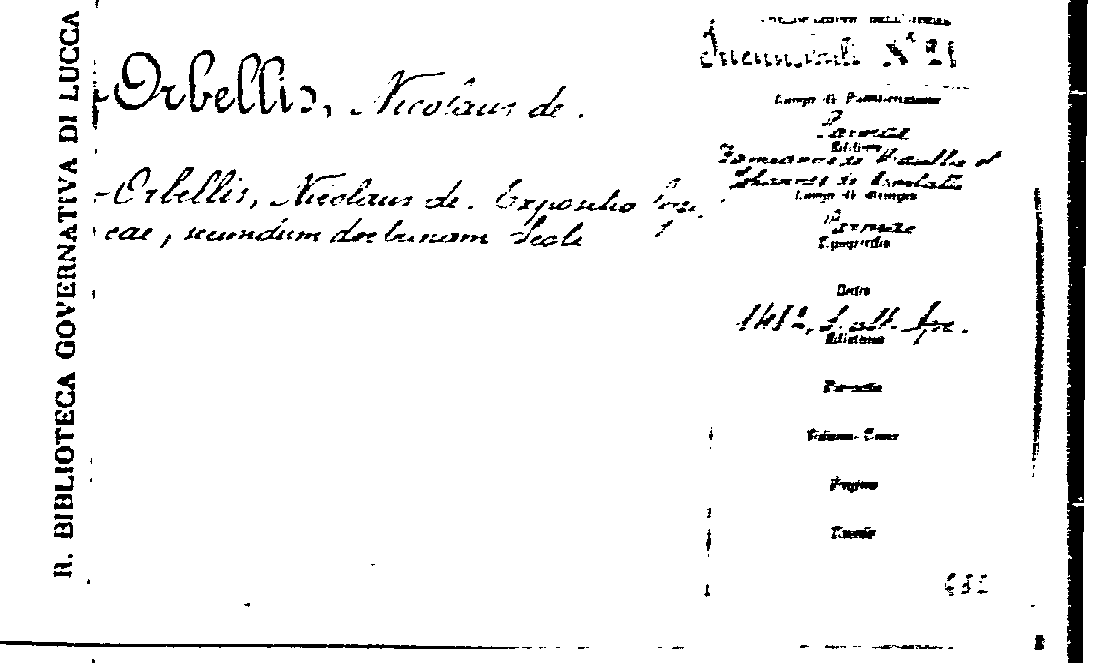 R. BIBLIOTECA GOVERNATIVA DI LUCCA
Orbellis, Nicolaus de.
Orbellis, Nicolaus de. Expositio logi
cae, secundum doctrinam Scoti
COLLOCAZIONE DELL'OPERA
Incunaboli N° 21
Luogo di Pubblicazione
Parmae
Editore
Damianus de et
Johannes de
Luogo di Stampa
Parmae
Tipografia
Data
1482,
Edizione
Formato
Volume
Pagine
Tavole